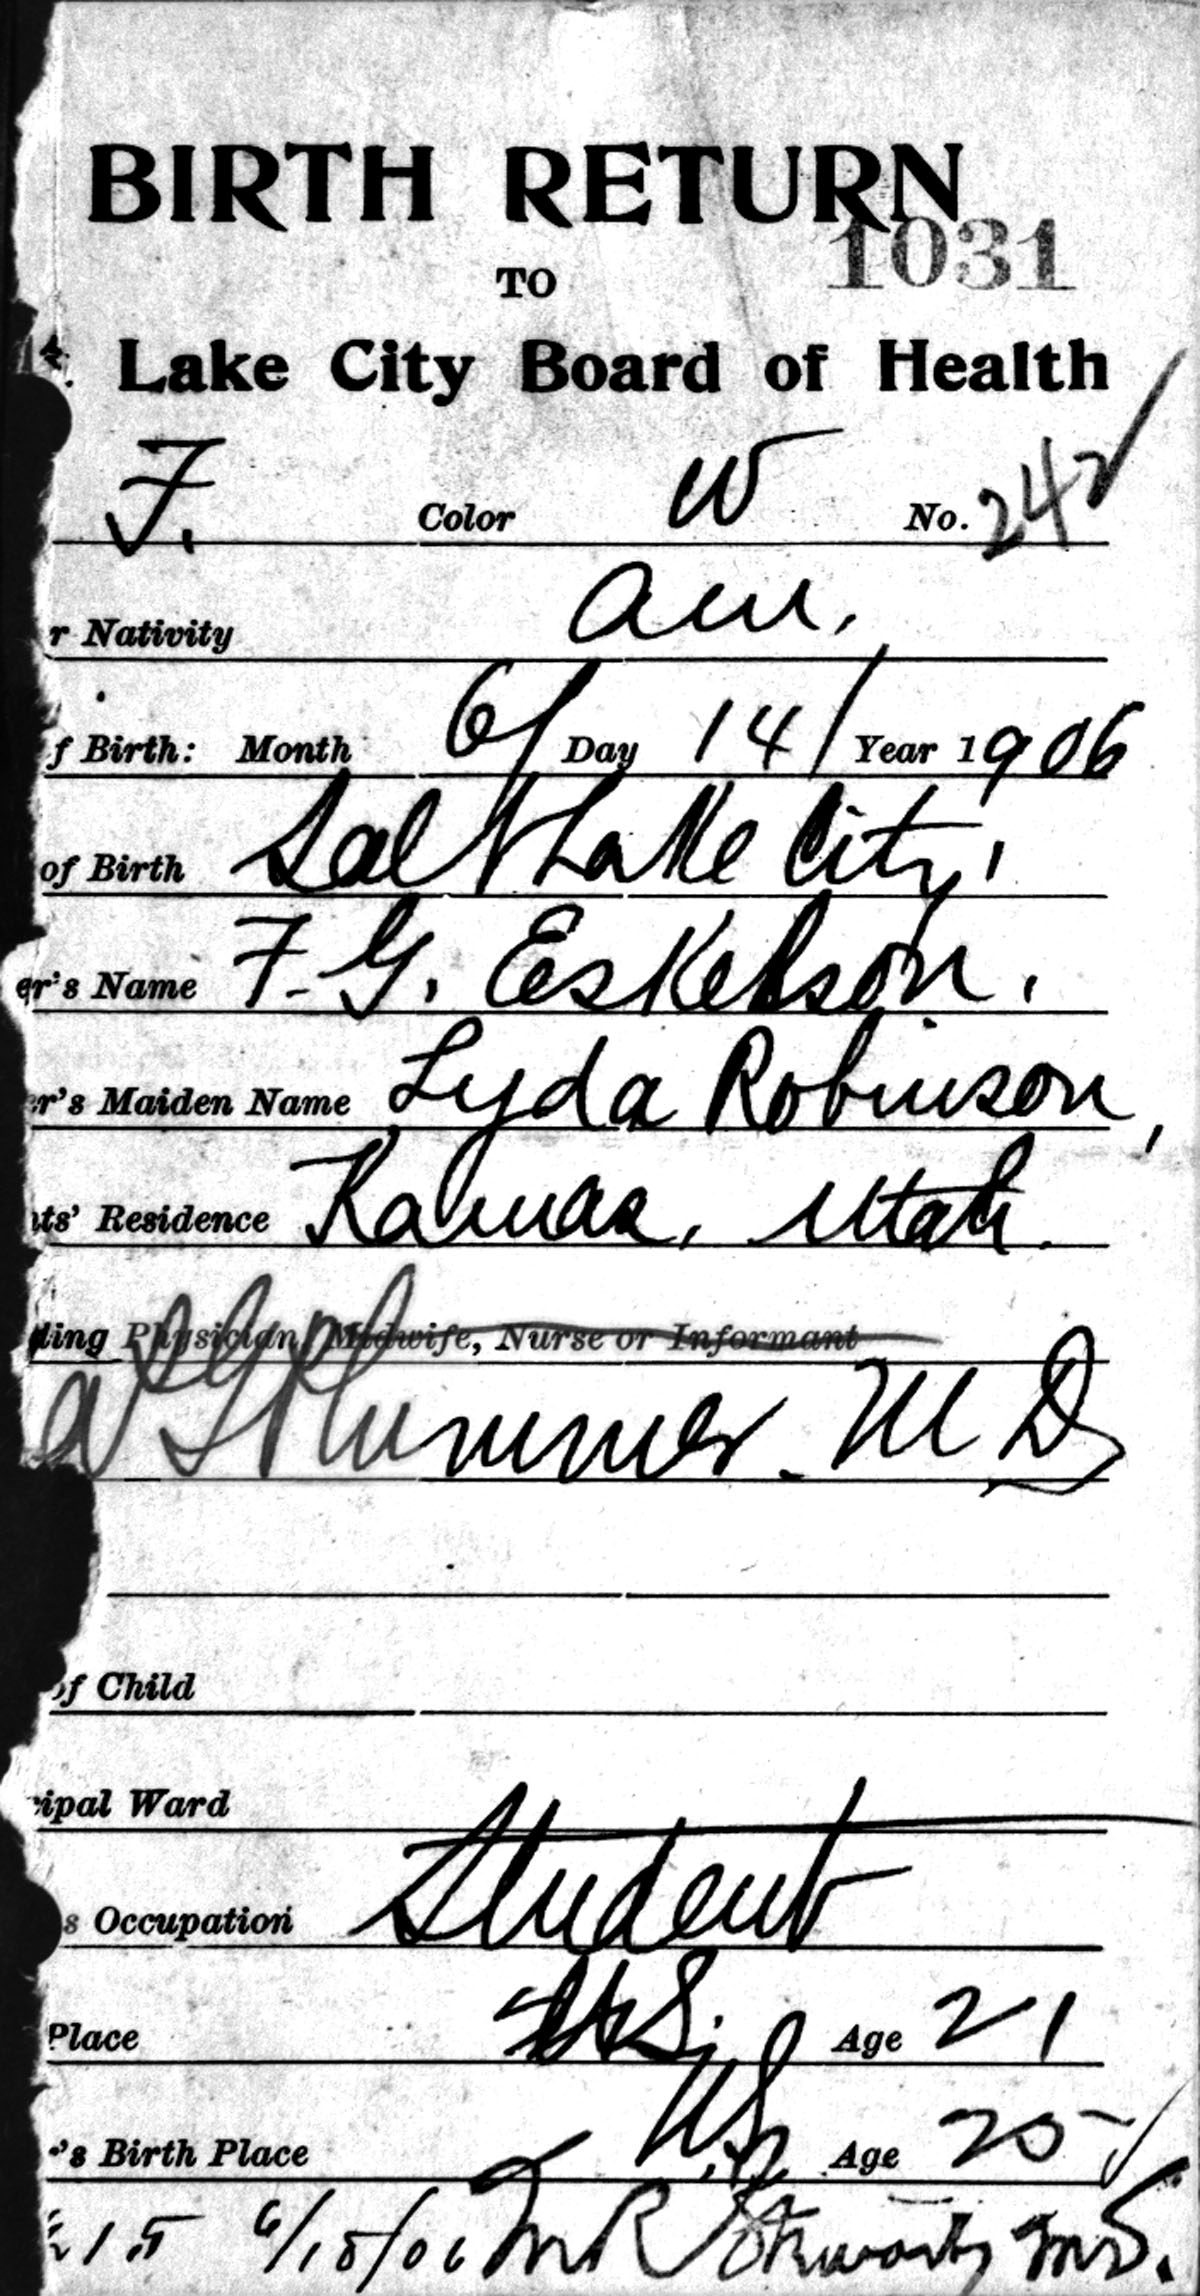 BIRTH RETURN
1031
TO
Lake City Board of Health
F. Color W No. 242
r Nativity am.
f Birth: Month 6/ Day 14/ Year 1906
of Birth Salt Lake City,
er's Name F. G. Eskelson.
er's Maiden Name Lyda Robinson,
nts' Residence Kamas, Utah.
ding Physician, Midwife, Nurse or Informant
Plummer. M D
of Child
cipal Ward
s Occupation Student
Place U.S. Age 21
's Birth Place U.S. Age 20
15 6/15/06